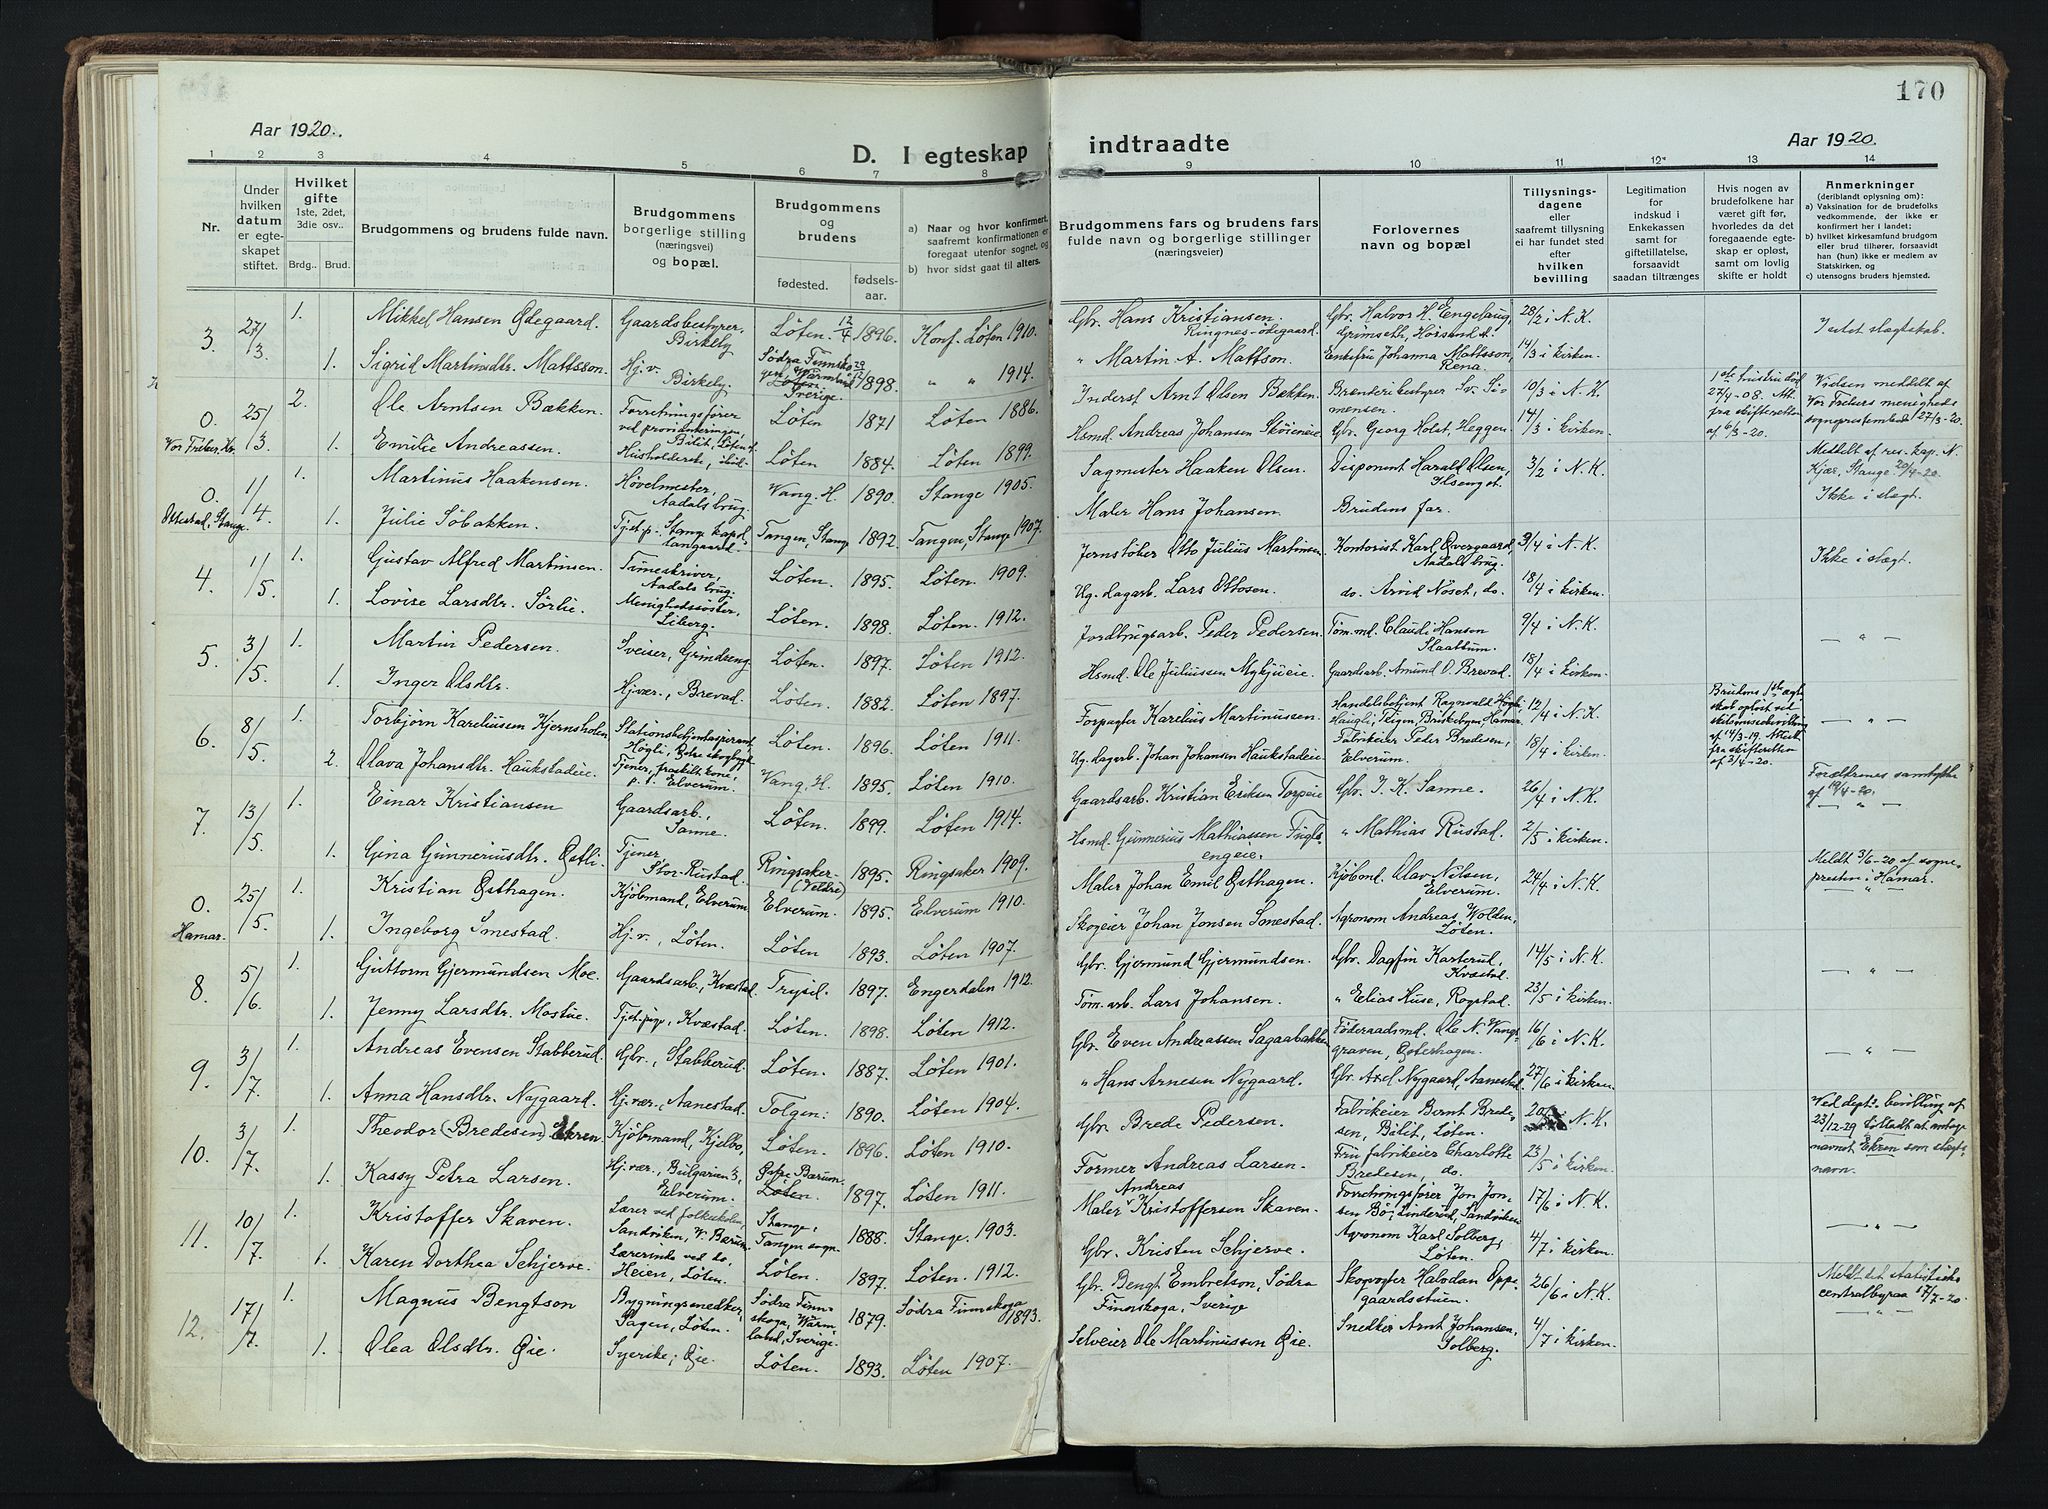 170
Aar 1920.
D. I egteskap indtraadte
Aar 1920.
1 2 3 4 5 6 7 8 9 10 11 12* 13 14
Nr.
Under hvilken datum er egteskapet stiftet.
Hvilket gifte 1ste, 2det, 3die osv..
Brdg.. Brud.
Brudgommens og brudens fulde navn.
Brudgommens borgerlige stilling (næringsvei) og bopæl.
Brudgommens og brudens
fødested. fødselsaar.
a) Naar og hvor konfirmert, saafremt konfirmationen er foregaat utenfor sognet, og
b) hvor sidst gaat til alters.
Brudgommens fars og brudens fars fulde navn og borgerlige stillinger (næringsveier)
Forlovernes navn og bopæl
Tillysningsdagene eller saafremt tillysning ei har fundet sted efter hvilken bevilling
Legitimation for indskud i Enkekassen samt for giftetillatelse, forsaavidt saadan tiltrænges
Hvis nogen av brudefolkene har været gift før, hvorledes da det foregaaende egteskap er opløst, samt om lovlig skifte er holdt
Anmerkninger (deriblandt oplysning om):
a) Vaksination for de brudefolks vedkommende, der ikke er konfirmert her i landet;
b) hvilket kirkesamfund brudgom eller brud tilhører, forsaavidt han (hun) ikke er medlem av Statskirken, og
c) utensogns bruders hjemsted.
3. 27/3. 1. Mikkel Hansen Ødegaard. Gaardsbestyrer, Birkeby Løten. 12/4 1896. Konf. Løten 1910. Gbr. Hans Kristiansen. Ringnes-ødegaard. Gbr. Halvor H. Engelaug, Grimseth, Hørsand st. 28/2 i N. K. I intet slegtskab.
1. Sigrid Martinsdtr. Mattsson. Hj. v. Birkeby. Södra Finnskogen, Värmland Løten. Sverige. 29/12 1898. " " 1914. " Martin A. Mattson. Enkefru Johanna Mattsson, Rena. 14/3 i kirken.
0. Vor Frelser. Kr. 25/3. 2. Ole Arntsen Bækken. Forretningsfører ved provianteringen, Bilit, Løten st. Løten 1871 Løten 1886. Inderst Arnt Olsen Bækken. Brænderibestyrer Sv. Simensen. 10/3 i N. K. 1ste hustru død 27/4-08. Att. fra skifteretten af 6/3-20. Vielsen meddelt af Vor Frelsers menigheds sogneprestembed 27/3-20.
1. Emilie Andreassen. Husholderske, ibid. Løten 1884. Løten 1899. Hsmd. Andreas Johansen Skøieneie. Gbr. Georg Holst, Heggen 14/3 i kirken.
0. Ottestad, Stange. 1/4. 1. Martinus Haakensen. Høvelmester, Aadals brug. Vang. H. 1890. Stange 1905. Sagmester Haaken Olsen. Disponent Harald Olsen, Ilseng st. 3/2 i N. K. Meddelt af res. kap. N. Kjær, Stange 20/4-20. Ikke i slegt.
1. Julie Søbakken. Tj.et.p., Stange kapellangaard. Tangen, Stange 1892. Tangen, Stange 1907. Maler Hans Johansen. Brudens far.
4. 1/5. 1. Gustav Alfred Martinsen. Timeskriver, Aadals brug. Løten. 1895. Løten. 1909. Jernstøber Otto Julius Martinsen. Kontorist Karl Øvergaard, Aadals brug. 9/4 i N. K. Ikke i slegt.
1. Lovise Larsdtr. Sørlie. Menighedssøster, Liberg. Løten. 1898. Løten. 1912. Ug. dagarb. Lars Ottosen. do. Arvid Nøset, do. 18/4 i kirken.
5. 3/5. 1. Martin Pedersen. Sveiser, Grindseng. Løten. 1897. Løten 1912. Jordbrugsarb. Peder Pedersen. Tøm. md. Claudi Hansen Slaattum. 9/4 i N. K. — " —
1. Inger Olsdtr. Hjvær., Brevad. Løten. 1882. Løten 1897. Hsmd. Ole Juliussen Mykjueie. Gaardsarb. Amund O. Brevad. 18/4 i kirken.
6. 8/5. 1. Torbjørn Kareliussen Kjernsholen. Stationsbetjentaspirant, Høgli, Østre skogbygd Løten. 1896. Løten 1911. Forpagter Karelius Martinussen. Handelsbetjent Ragnvald Høgli, Haugli, Teigen, Briskebyen, Hamar. 12/4 i N. K. Brudens 1ste ægteskab opløst ved skilsmissebevilling af 14/3-19. Attest fra skifteretten af 3/4-20. — " —
2. Olava Johansdtr. Haukstadeie. Tjener, fraskilt kone, p. t. Elverum. Vang, H. 1895. Løten 1910. Ug. dagarb. Johan Johansen Haukstadeie. Fabrikeier Peder Bredesen, Elverum. 18/4 i kirken.
7. 13/5. 1. Einar Kristiansen Gaardsarb., Sanne. Løten. 1899. Løten 1914. Gaardsarb. Kristian Eriksen Torpeie Gbr. I. K. Sanne. 26/4 i N. K. Forældrenes samtykke af 19/4-20. — " —
1. Gina Gunneriusdtr. Østli. Tjener Stor-Rustad. Ringsaker (Veldre) 1895. Ringsaker 1909. Hsmd. Gunnerius Mathiassen Fuglsengeie. " Mathias Rustad. 2/5 i kirken.
0. Hamar. 25/5. 1. Kristian Østhagen. Kjøbmand, Elverum Elverum. 1895. Elverum 1910. Maler Johan Emil Østhagen. Kjøbmd. Olav Nilsen, Elverum. 24/4 i N. K. Meldt 3/6-20 af sognepresten i Hamar. — " —
1. Ingeborg Smestad. Hj. v., Løten. Løten 1893. Løten 1907. Skogeier Johan Jonsen Smestad. Agronom Andreas Wolden, Løten.
8. 5/6. 1. Guttorm Gjermundsen Moe. Gaardsarb., Kvæstad. Trysil. 1897. Engerdalen 1912. Gbr. Gjermund Gjermundsen. Gbr. Dagfin Karterud, Kvæstad. 14/5 i N. K. — " —
1. Jenny Larsdtr. Mostue. Tj.et.pige, Kvæstad. Løten. 1898. Løten 1912. Tøm. arb. Lars Johansen. " Elias Huse, Rogstad. 23/5 i kirken.
9. 3/7. 1. Andreas Evensen Stabberud. Gbr., Stabberud. Løten. 1887. Løten 1901. Gbr. Even Andreassen Sagaabakken Føderaadsmd. Ole N. Vangsgraven, Østerhagen. 16/6 i N. K. — " —
1. Anna Hansdtr. Nygaard. Hj.vær., Aanestad. Tolgen. 1890. Løten 1904. " Hans Arnesen Nygaard. Gbr. Axel Nygaard, Aanestad. 27/6 i kirken.
10. 3/7. 1. Theodor (Bredesen) Ekren. Kjøbmand, Kjelbo, Løten. 1896. Løten 1910. Gbr. Brede Pedersen. Fabrikeier Bernt Bredesen, Bilit, Løten. 20/5 i N. K. Ved dept.s bevilling af 23/12-29 tilladt at antage navnet Ekren som slegtsnavn.
1. Kassy Petra Larsen. Hj. vær., Bulgarien 3, Elverum. Østre Bærum. Løten. 1897. Løten 1911. Former Andreas Larsen. Fru fabrikeier Charlotte Bredesen, do. 23/5 i kirken.
11. 10/7. 1. Kristoffer Skaven. Lærer ved folkeskolen, Sandviken, V. Bærum. Stange, Tangen sogn. 1888. Stange 1903. Maler Andreas Kristoffersen Skaven. Forretningsfører Jon Jonsen Bö, Linderud, Sandviken 17/6 i N. K. — " —
1. Karen Dorthea Schjerve. Lærerinde ved do, Heien, Løten. Løten. 1897. Løten. 1912. Gbr. Kristen Schjerve. Agronom Karl Solberg, Løten. 4/7 i kirken.
12. 17/7. 1. Magnus Bengtson Bygningssnedker, Sagen, Løten. Södra Finnskoga, Wärmland, Sverige. 1879. Södra Finnskoga 1893. Gbr. Bengt Embretson, Södra Finnskoga, Sverige Skogvogter Halvdan Oppegaardsstuen. 26/6 i N. K. Meldt det statistiske centralbyraa 17/7-20. — " —
1. Olea Olsdtr. Øie. Syerske, Øie. Løten. 1893. Løten 1907. Selveier Ole Martinussen Øie. Snedker Arnt Johansen, Solberg. 4/7 i kirken.